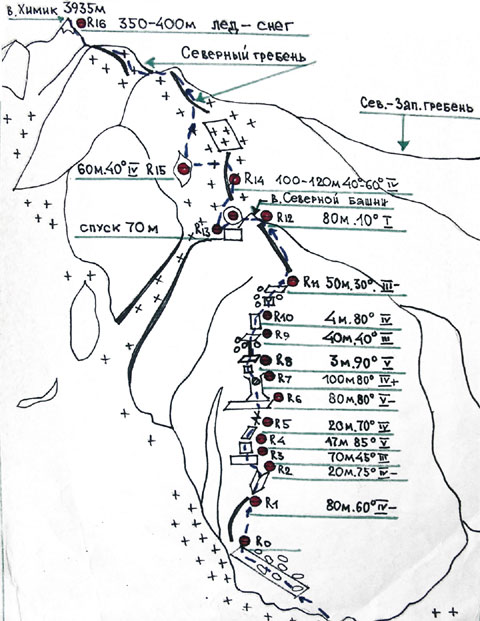 в. Химик 3935м
R16 350-400м лед-снег
Северный гребень
Сев.-Зап. гребень
60м.40° IV R15
R14 100-120м 40-60° IV
в. Северной Башни
R12 80м.10° I
спуск 70м R13
R11 50м.30°. III-
R10 4м.80° IV
R9 40м.40° III
R8 3м.90° V
R7 100м80° IV+
R6 80м.80° V-
R5 20м.70° IV
R4 17м 85° V
R3 70м45° III
R2 20м.75° IV-
R1 80м.60° IV-
R0